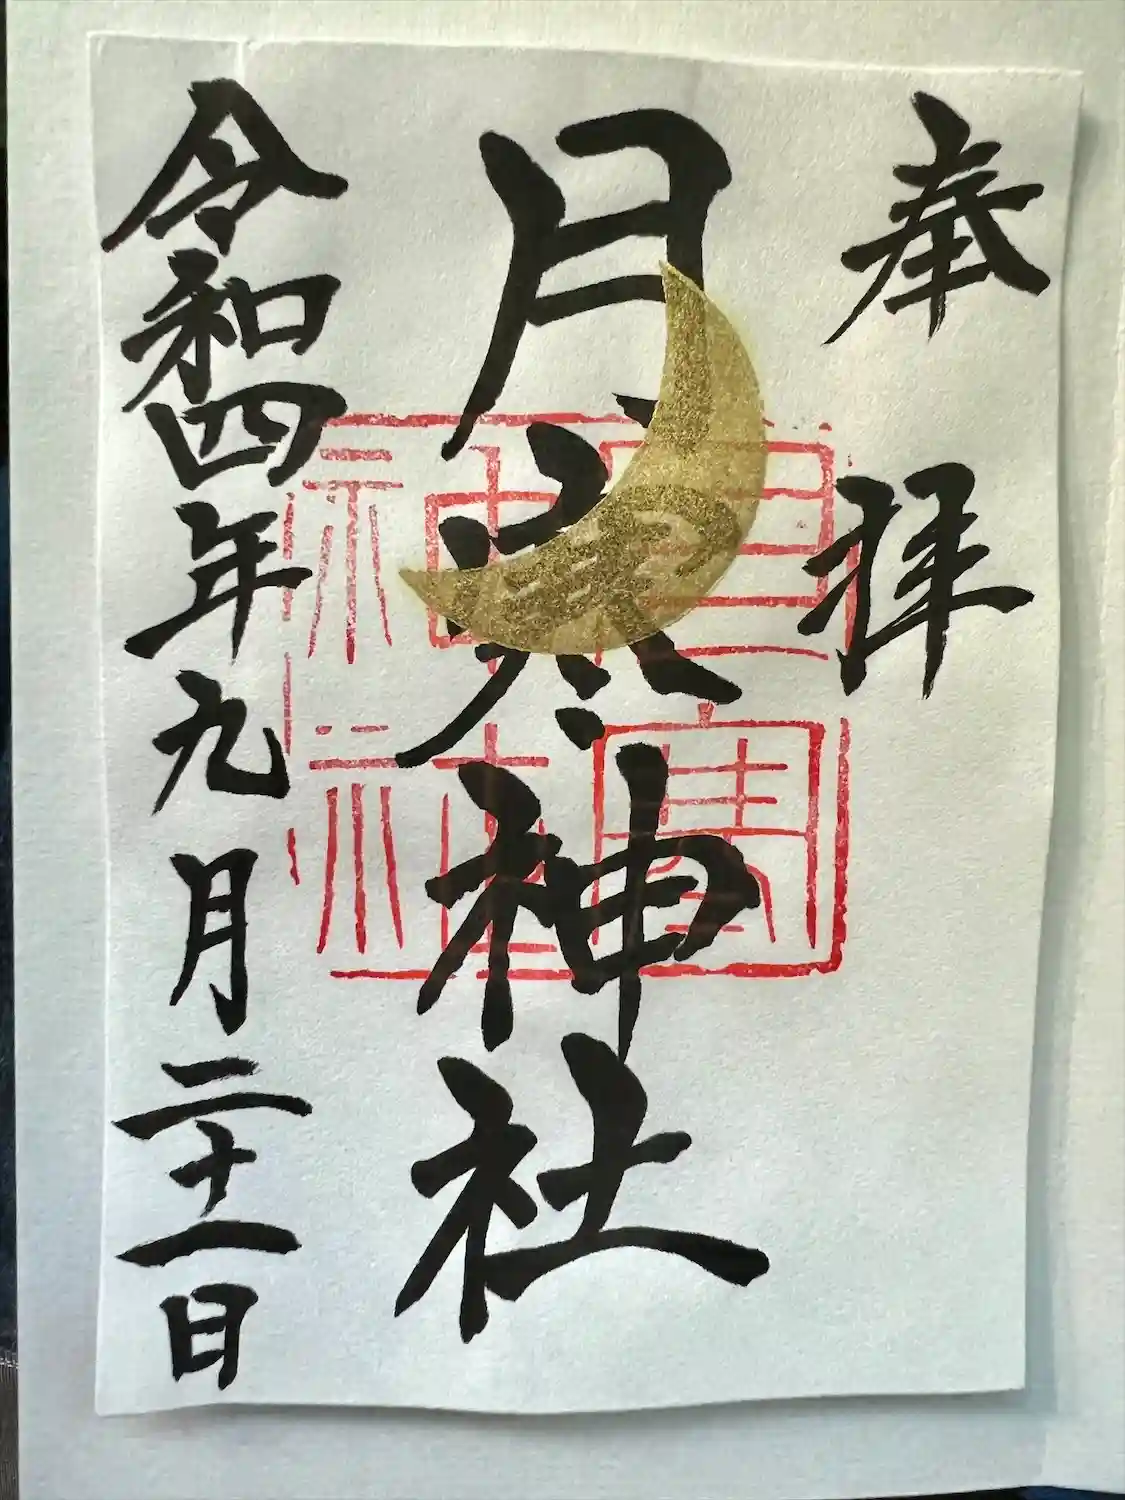 奉拝
月寒神社
月寒神社
令和四年九月二十一日